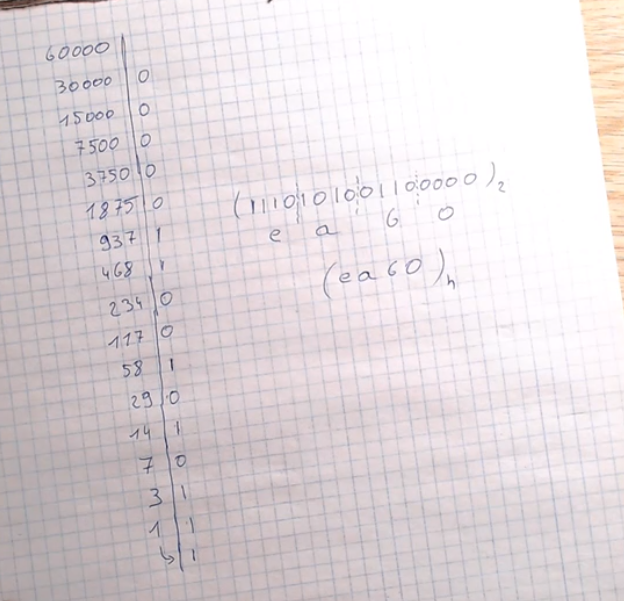 60000
30000 0
15000 0
7500 0
3750 0
1875 0
937 1
468 1
234 0
117 0
58 1
29 0
14 1
7 0
3 1
1 1
↳ 1
(1110101001100000)₂
e a 6 0
(ea60)ₕ